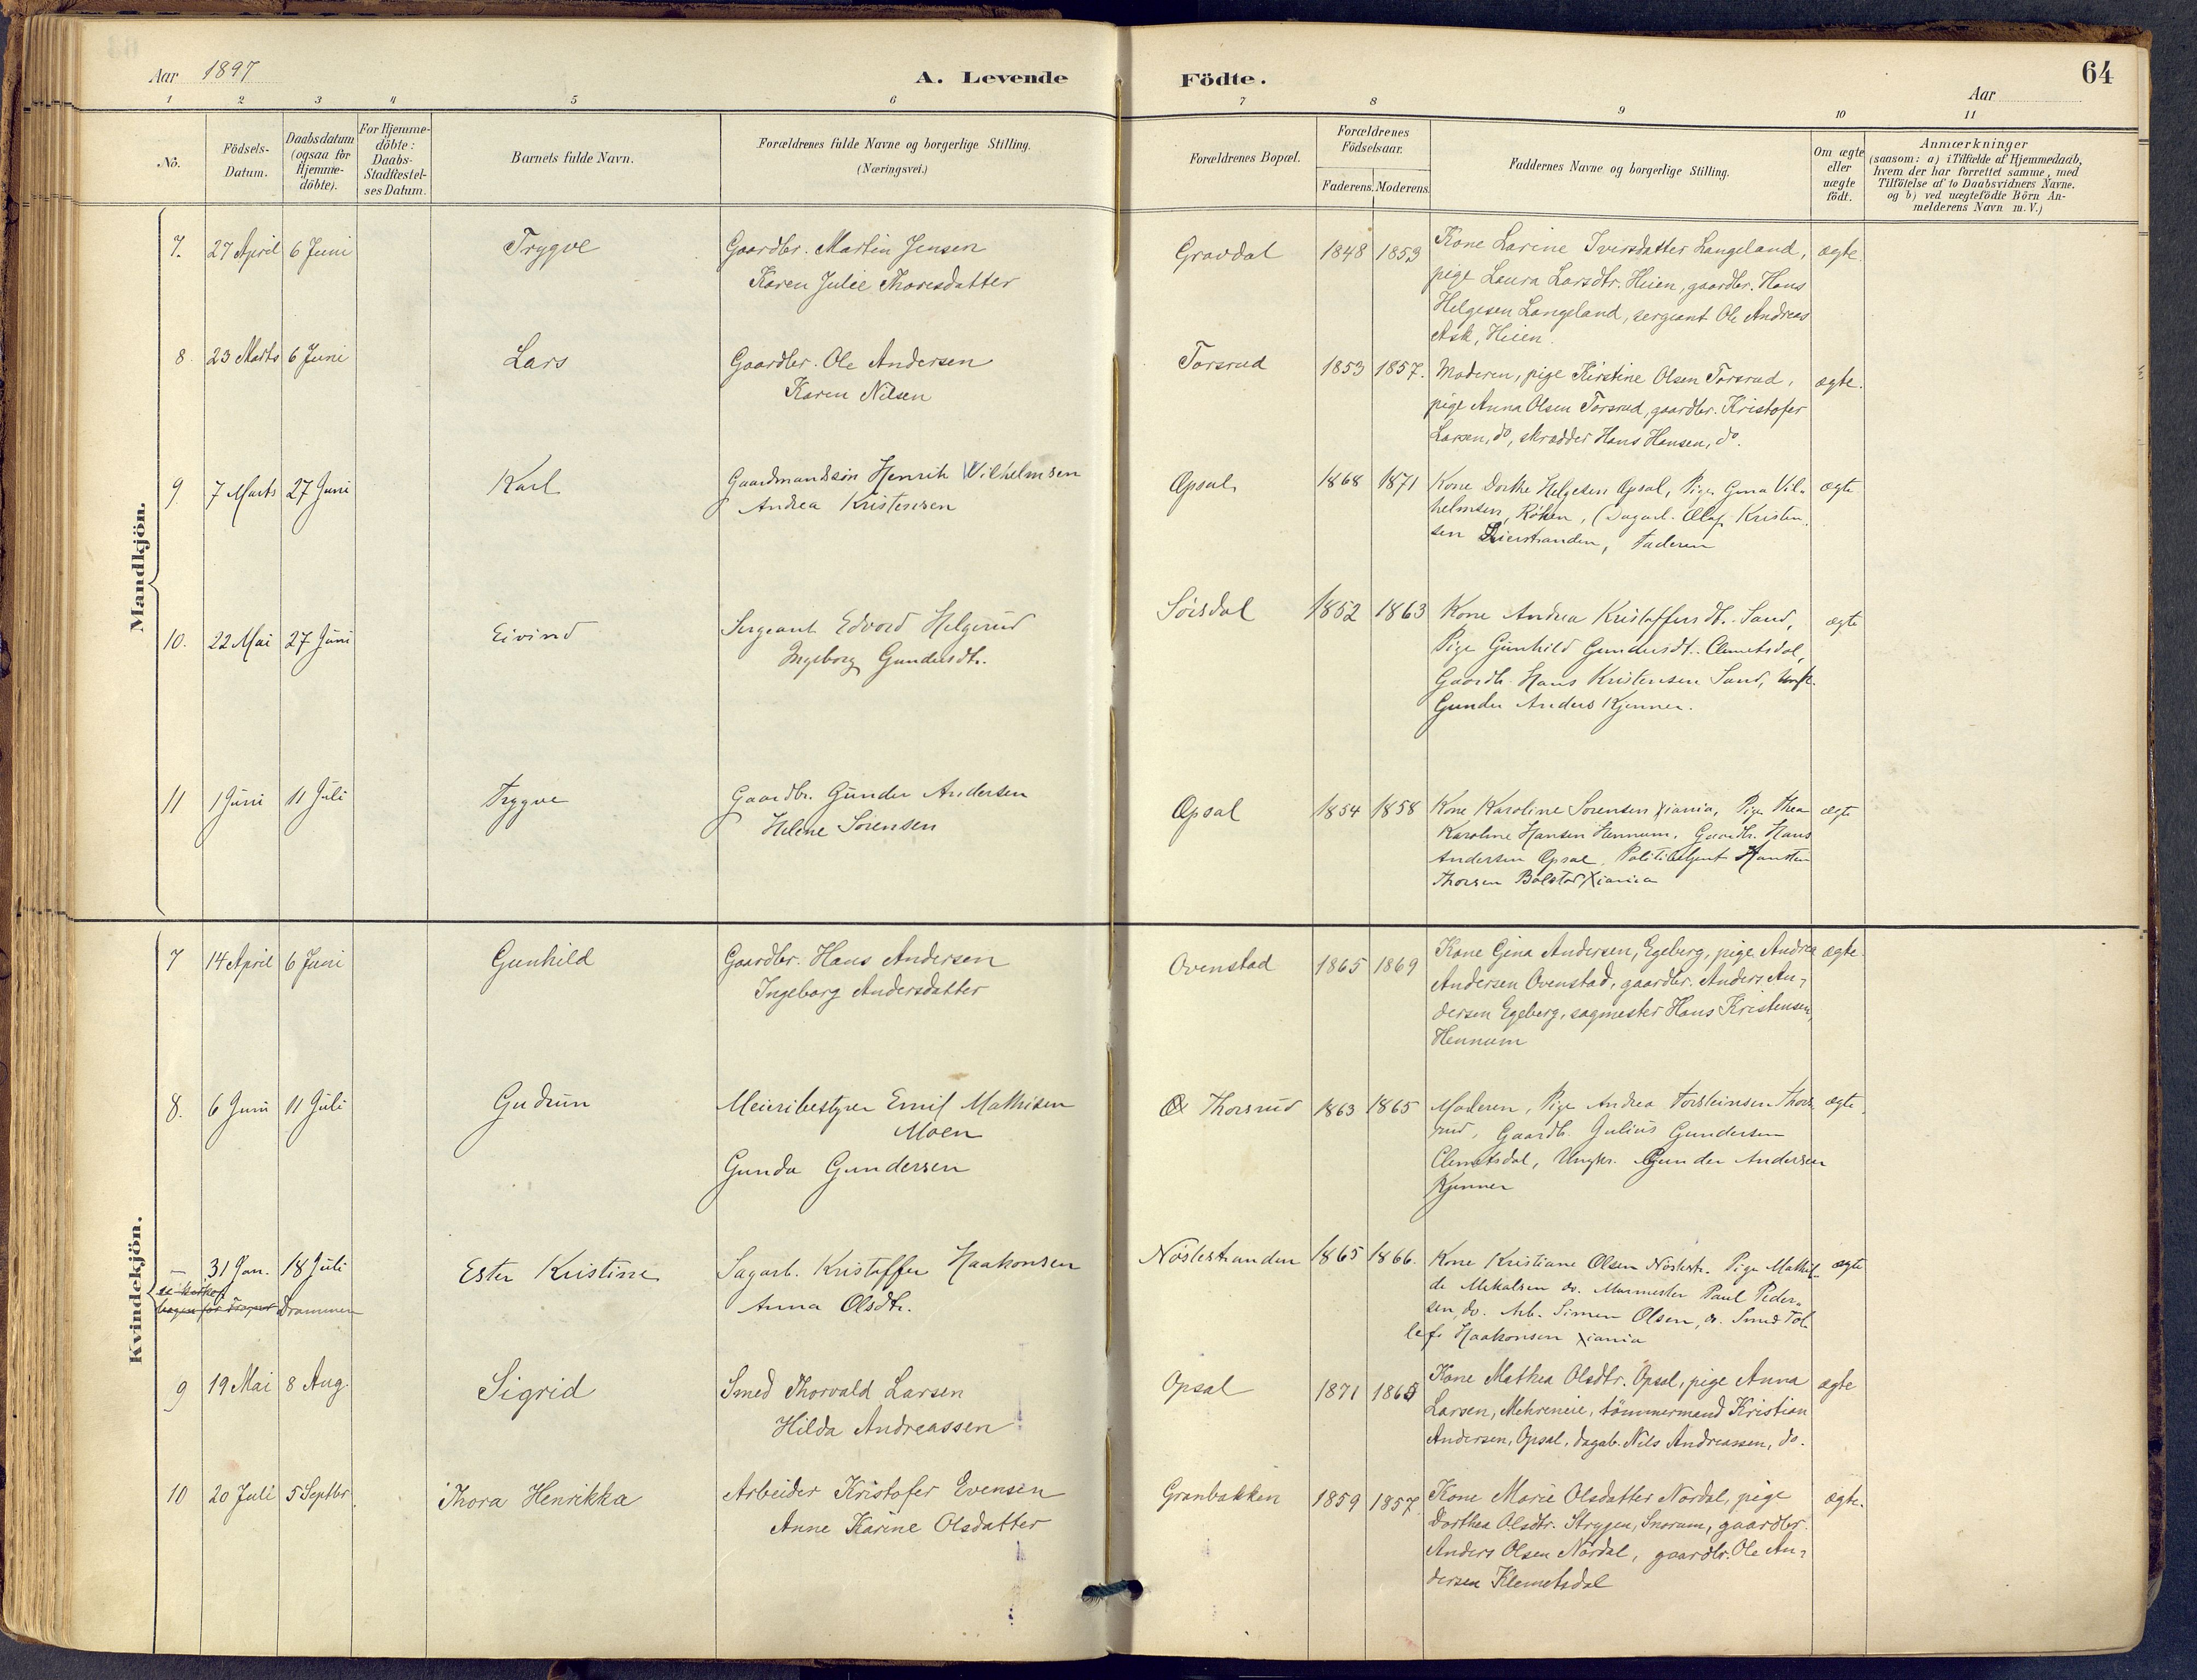 Aar 1897
A. Levende Födte.
64
Aar
1 2 3 4 5 6 7 8 9 10 11
Nö.
Födsels-Datum.
Daabsdatum (ogsaa för Hjemme-döbte).
For Hjemme-döbte: Daabs-Stadfæstel-ses Datum.
Barnets fulde Navn.
Forældrenes fulde Navne og borgerlige Stilling.
(Næringsvei.)
Forældrenes Bopæl.
Forældrenes Födselsaar.
Faderens. Moderens.
Faddernes Navne og borgerlige Stilling.
Om ægte eller uægte födt.
Anmærkninger
(saasom: a) i Tilfælde af Hjemmedaab,
hvem der har forrettet samme, med
Tilföielse af to Daabsvidners Navne.
og b) ved uægtefödte Börn An-
melderens Navn m. V.)
Mandkjön.
7. 27 April 6 Juni Trygve Gaardbr. Martin Jensen Gravdal 1848 1853 Kone Larine Iversdatter Langeland, ægte
Karen Julie Thoresdatter pige Laura Larsdtr. Heien, gaardbr. Hans
Helgesen Langeland, sergeant Ole Andreas
Ask, Heien.
8. 23 Marts 6 Juni Lars Gaardbr. Ole Andersen Torsrud 1853 1857. Moderen, pige Kirstine Olsen Torsrud, ægte.
Karen Nilsen pige Anna Olsen Torsrud, gaardbr. Kristofer
Larsen, do, skrædder Hans Hansen, do.
9. 7 Marts 27 Juni Karl Gaardmandssøn Henrik Wilhelmsen Opsal 1868 1871 Kone Dorthe Helgesen Opsal, Pige Gina Vil-
ægte
Andrea Kristensen helmsen, Røken, Dagarb. Olaf Kristen-
sen Lierstranden, Faderen
10. 22 Mai 27 Juni Eivind Sergeant Edvard Helgerud Sørsdal 1852 1863 Kone Andrea Kristoffersdt. Sand, ægte
Ingeborg Gundersdt. Pige Gunhild Gundersdt. Clemetsdal,
Gaardb. Hans Kristensen Sand, Ungk.
Gunder Anders Kjenner.
11 1 Juni 11 Juli Trygve Gaardbr. Gunder Andersen Opsal 1854 1858 Kone Karoline Sørensen Xiania, Pige Thea ægte
Helene Sørensen Karoline Hansen Hennum, Gaardb. Hans
Andersen Opsal, Politibetjent Hansten
Thorsen Bolstad Xiania
Kvindekjön.
7 14 April 6 Juni Gunhild Gaardbr. Hans Andersen Ovenstad 1865 1869 Kone Gina Andersen, Egeberg, pige Andrea ægte
Ingeborg Andersdatter Andersen Ovenstad, gaardbr. Anders An-
dersen Egeberg, sagmester Hans Kristensen,
Hennum
8. 6 Juni 11 Juli Gudrun Meieribestyrer Emil Mathisen Thorsrud 1863 1865 Moderen, Pige Andrea Torsteinsen Thors- ægte
Moen rud, Gaardb. Julius Gundersen
Gunda Gundersen Clemetsdal, Ungkr. Gunder Andersen
Kjenner
– 31 Jan. 18 Juli Ester Kristine Sagarb. Kristoffer Haakonsen Nøstestranden 1865 1866. Kone Kristiane Olsen Nøstestr. Pige Mathil- ægte
Drammen Anna Olsdtr. de Mikalsen do. Murmester Paul Peder-
sen, do. Arb. Simen Olsen, do. Smed Tol-
lef Haakonsen Xiania
9 19 Mai 8 Aug. Sigrid Smed Thorvald Larsen Opsal 1871 1865 Kone Mathea Olsdtr. Opsal, pige Anna ægte
Hilda Andreassen Larsen, Mehreneie, tömmermand Kristian
Andersen, Opsal, dagab. Nils Andreassen, do.
10 20 Juli 5 Septbr. Thora Henrikka Arbeider Kristofer Evensen Granbakken 1859 1857. Kone Marie Olsdatter Nordal, pige ægte.
Anne Karine Olsdatter Dorthea Olsdtr. Strygen, Snorum, gaardbr.
Anders Olsen Nordal, gaardbr. Ole An-
dersen Klemetsdal